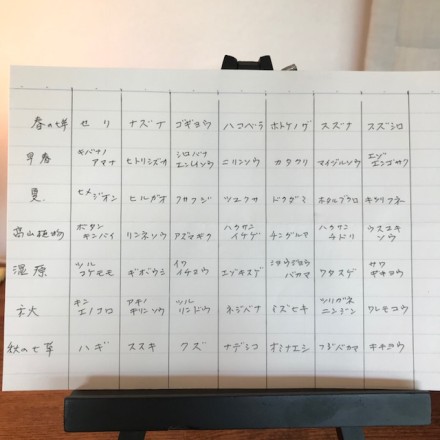 春の七草 セリ ナズナ ゴギョウ ハコベラ ホトケノザ スズナ スズシロ
早春 キバナノアマナ ヒトリシズカ シロバナエンレイソウ ニリンソウ カタクリ マイヅルソウ エゾエンゴサク
夏 ヒメジオン ヒルガオ クサフジ ツユクサ ドクダミ ホタルブクロ キツリフネ
高山植物 ボタンキンバイ リンネソウ アズマギク ハクサンイチゲ チングルマ ハクサンチドリ ウスユキソウ
湿原 ツルコケモモ ギボウシ イワイチョウ エゾキスゲ ショウジョウバカマ ワタスゲ サワギキョウ
秋 キンエノコロ アキノキリンソウ ツルリンドウ ネジバナ ミズヒキ ツリガネニンジン ワレモコウ
秋の七草 ハギ ススキ クズ ナデシコ オミナエシ フジバカマ キキョウ